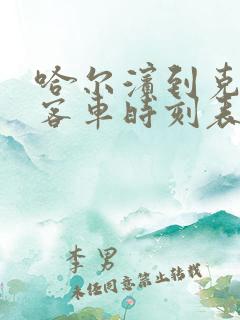 哈尔滨到克
客车时刻表
李男
未经同意禁止转载